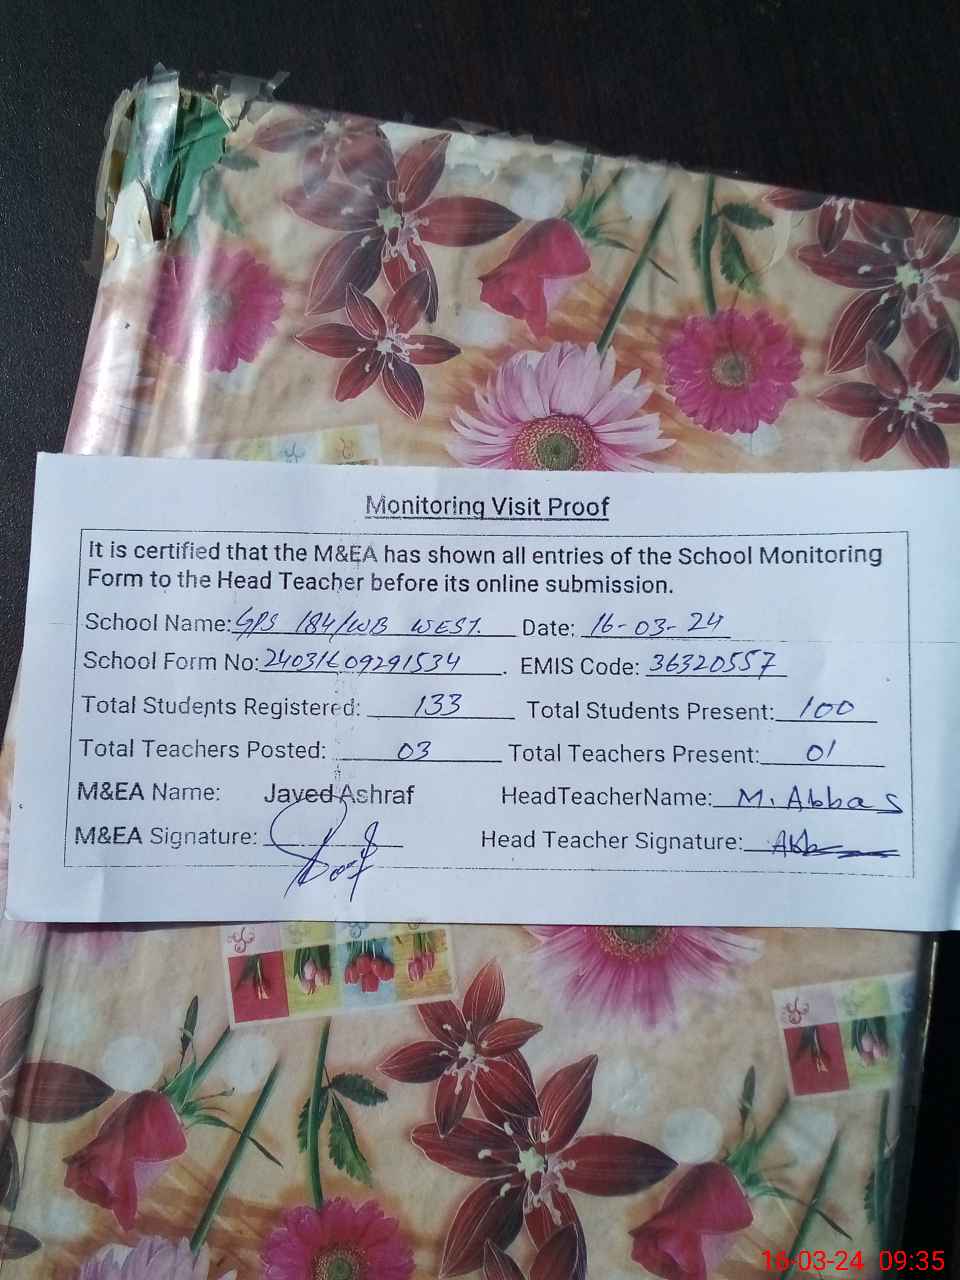 Monitoring Visit Proof
It is certified that the M&EA has shown all entries of the School Monitoring
Form to the Head Teacher before its online submission.
School Name: GPS 184/WB WEST. Date: 16-03-24
School Form No: 24031609291534. EMIS Code: 36320557
Total Students Registered: 133 Total Students Present: 100
Total Teachers Posted: 03 Total Teachers Present: 01
M&EA Name: Javed Ashraf HeadTeacherName: M. Abbas
M&EA Signature: Head Teacher Signature:
16-03-24 09:35